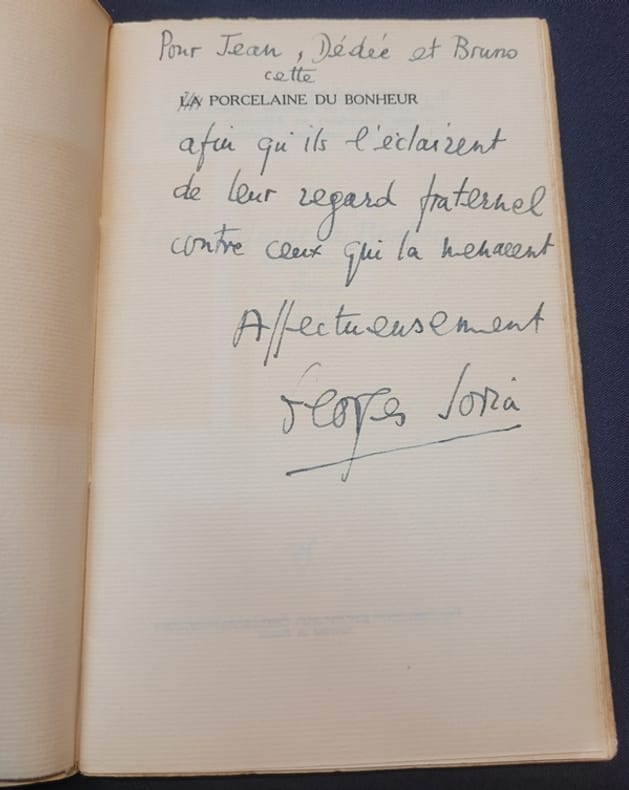 Pour Jean, Dédée et Bruno
cette
LA PORCELAINE DU BONHEUR
afin qu'ils l'éclairent
de leur regard fraternel
contre ceux qui la menacent
Affectueusement
Georges Soria